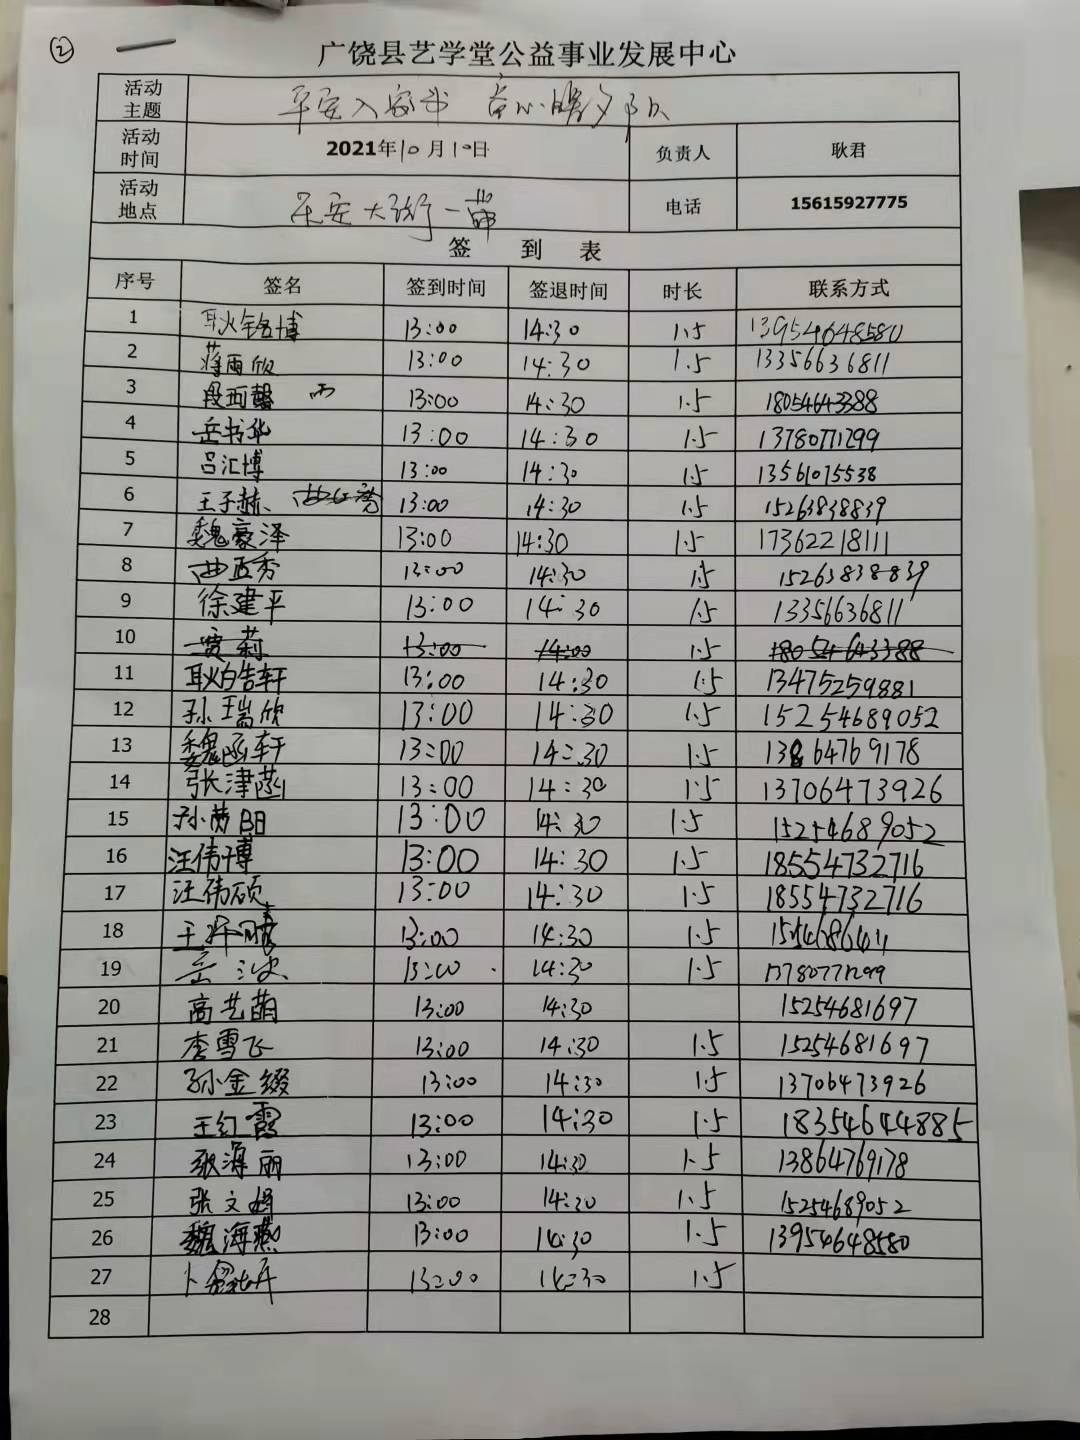 ②
广饶县艺学堂公益事业发展中心
活动主题 平安入家
活动时间 2021年10月10日 负责人 耿君
活动地点 乐安大街一带 电话 15615927775
签 到 表
序号 签名 签到时间 签退时间 时长 联系方式
1 耿铭博 13:00 14:30 1.5 13954648580
2 蒋雨欣 13:00 14:30 1.5 13356636811
3 段雨馨 雨 13:00 14:30 1.5 18054643388
4 岳书华 13:00 14:30 1.5 13780771299
5 吕汇博 13:00 14:30 1.5 13561075538
6 王子赫 13:00 14:30 1.5 15263838839
7 魏豪泽 13:00 14:30 1.5 17362218111
8 曲延秀 13:00 14:30 1.5 15263838839
9 徐建平 13:00 14:30 1.5 13356636811
10 贾莉 13:00 14:00 1.5 18054643388
11 耿皓轩 13:00 14:30 1.5 13475259881
12 孙瑞欣 13:00 14:30 1.5 15254689052
13 魏函轩 13:00 14:30 1.5 13864769178
14 张津菡 13:00 14:30 1.5 13706473926
15 13:00 14:30 1.5 15254689052
16 汪伟博 13:00 14:30 1.5 18554732716
17 汪伟硕 13:00 14:30 1.5 18554732716
18 13:00 14:30 1.5 1554686411
19 13:00 14:30 1.5 13780771299
20 高艺萌 13:00 14:30 15254681697
21 李雪飞 13:00 14:30 1.5 15254681697
22 孙金缀 13:00 14:30 1.5 13706473926
23 王红霞 13:00 14:30 1.5 18354644885
24 张海丽 13:00 14:30 1.5 13864769178
25 张文娟 13:00 14:30 1.5 15254689052
26 魏海燕 13:00 14:30 1.5 13954648580
27 13:00 14:30 1.5
28